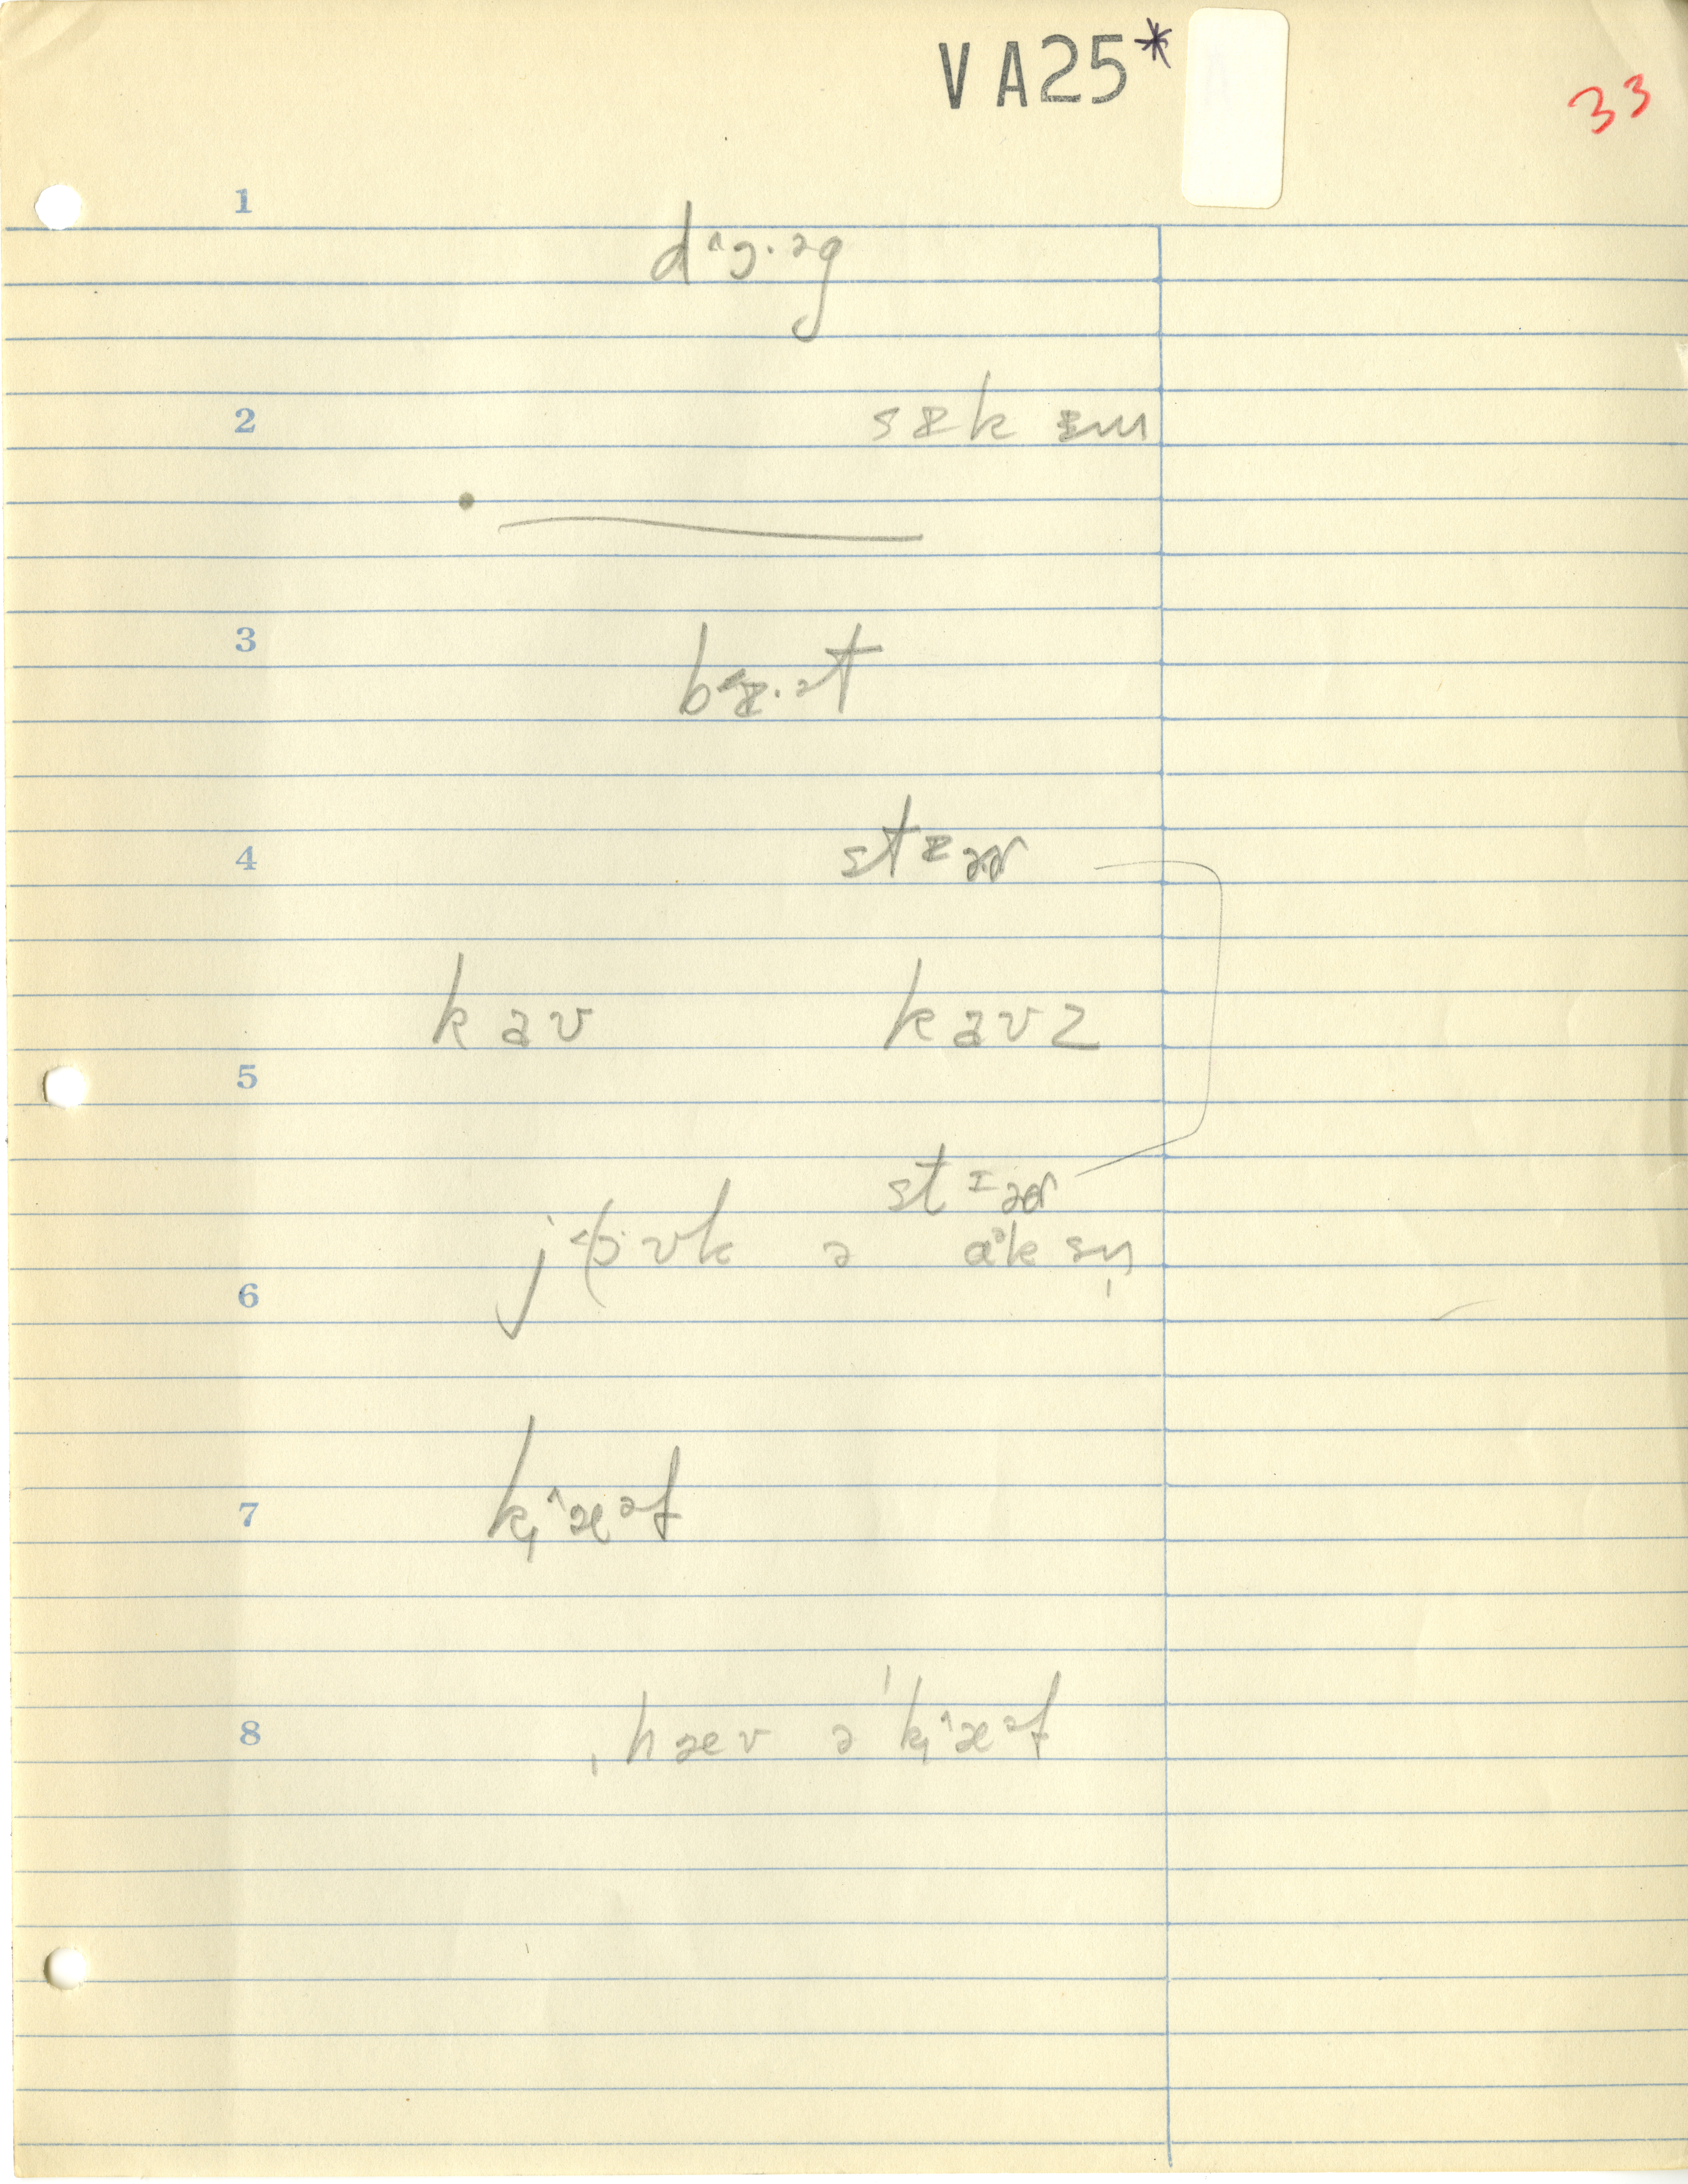 VA25*
33
1
d^ɔ·əg
2
sɪk ɪm
3
b ɪ·ət
4
stɪər
kav kavz
5
stɪər
jɔ vk ə ɑksn̩
6
7
k̩^æəf
8
ˌhæv ə ˈk̩^æəf